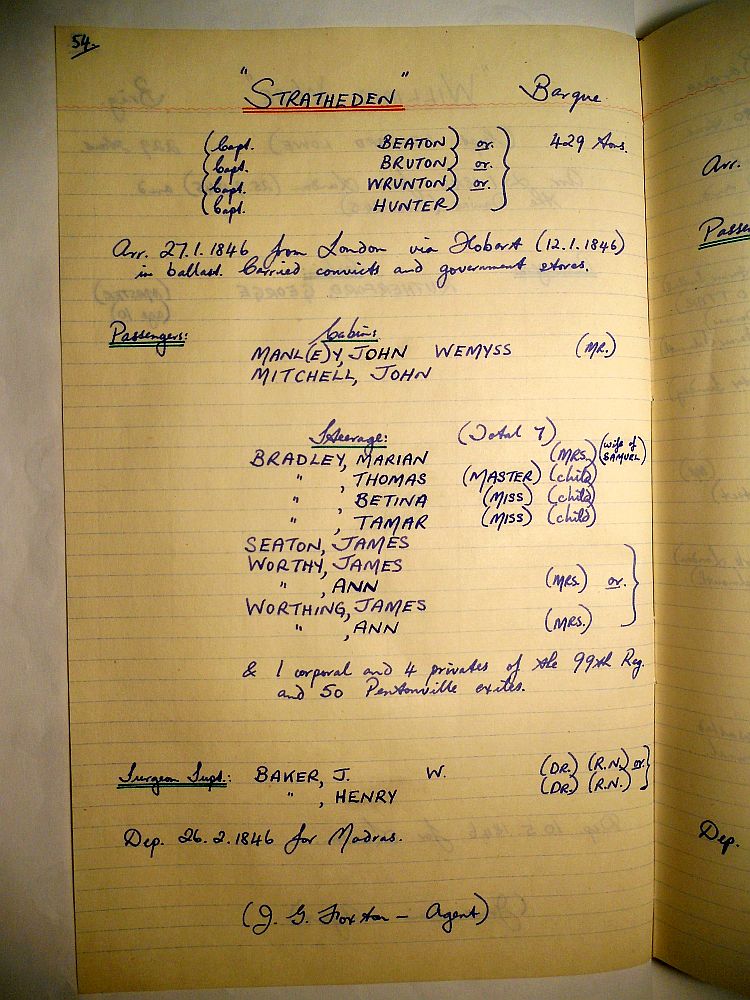 54.
"STRATHEDEN" Barque
(Capt. BEATON) or. 429 tons.
(Capt. BRUTON) or.
(Capt. WRUNTON) or.
(Capt. HUNTER)
Arr. 27.1.1846 from London via Hobart (12.1.1846)
in ballast. Carried convicts and government stores.
Passengers: Cabin:
MANL(E)Y, JOHN WEMYSS (MR.)
MITCHELL, JOHN
Steerage: (Total 7)
BRADLEY, MARIAN (MRS.) (wife of SAMUEL)
" , THOMAS (MASTER) (child)
" , BETINA (MISS) (child)
" , TAMAR (MISS) (child)
SEATON, JAMES
WORTHY, JAMES
" , ANN (MRS.) or.
WORTHING, JAMES
" , ANN (MRS.)
& 1 corporal and 4 privates of the 99th Reg.
and 50 Pentonville exiles.
Surgeon Supt.: BAKER, J. W. (DR.) (R.N.) or.
" , HENRY (DR.) (R.N.)
Dep. 26.2.1846 for Madras.
(J. G. Foxton - Agent)
Arr.
Dep.